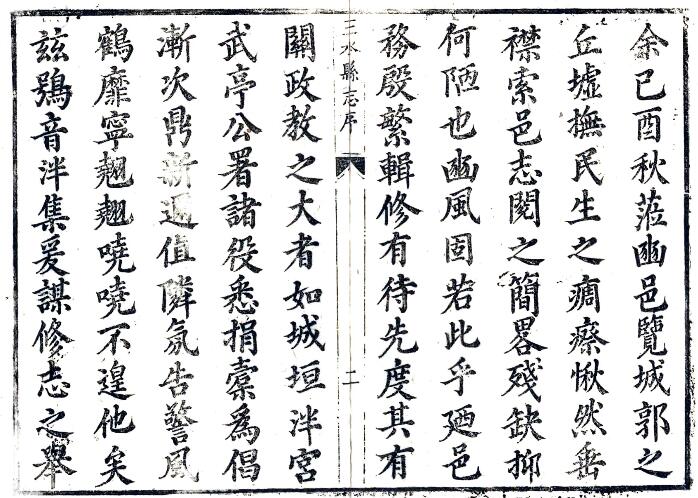 余己酉秋蒞豳邑覽城郭之
丘墟撫民生之痌瘵愀然垂
襟索邑志閱之簡畧殘缺抑
何陋也豳風固若此乎廼邑
務殷繁輯修有待先度其有
三水縣志序
二
關政教之大者如城垣泮宮
武亭公署諸役悉捐橐為倡
漸次鼎新適值隣氛告警風
鶴靡寧翹翹嘵嘵不遑他矣
茲鴞音泮集爰謀修志之舉